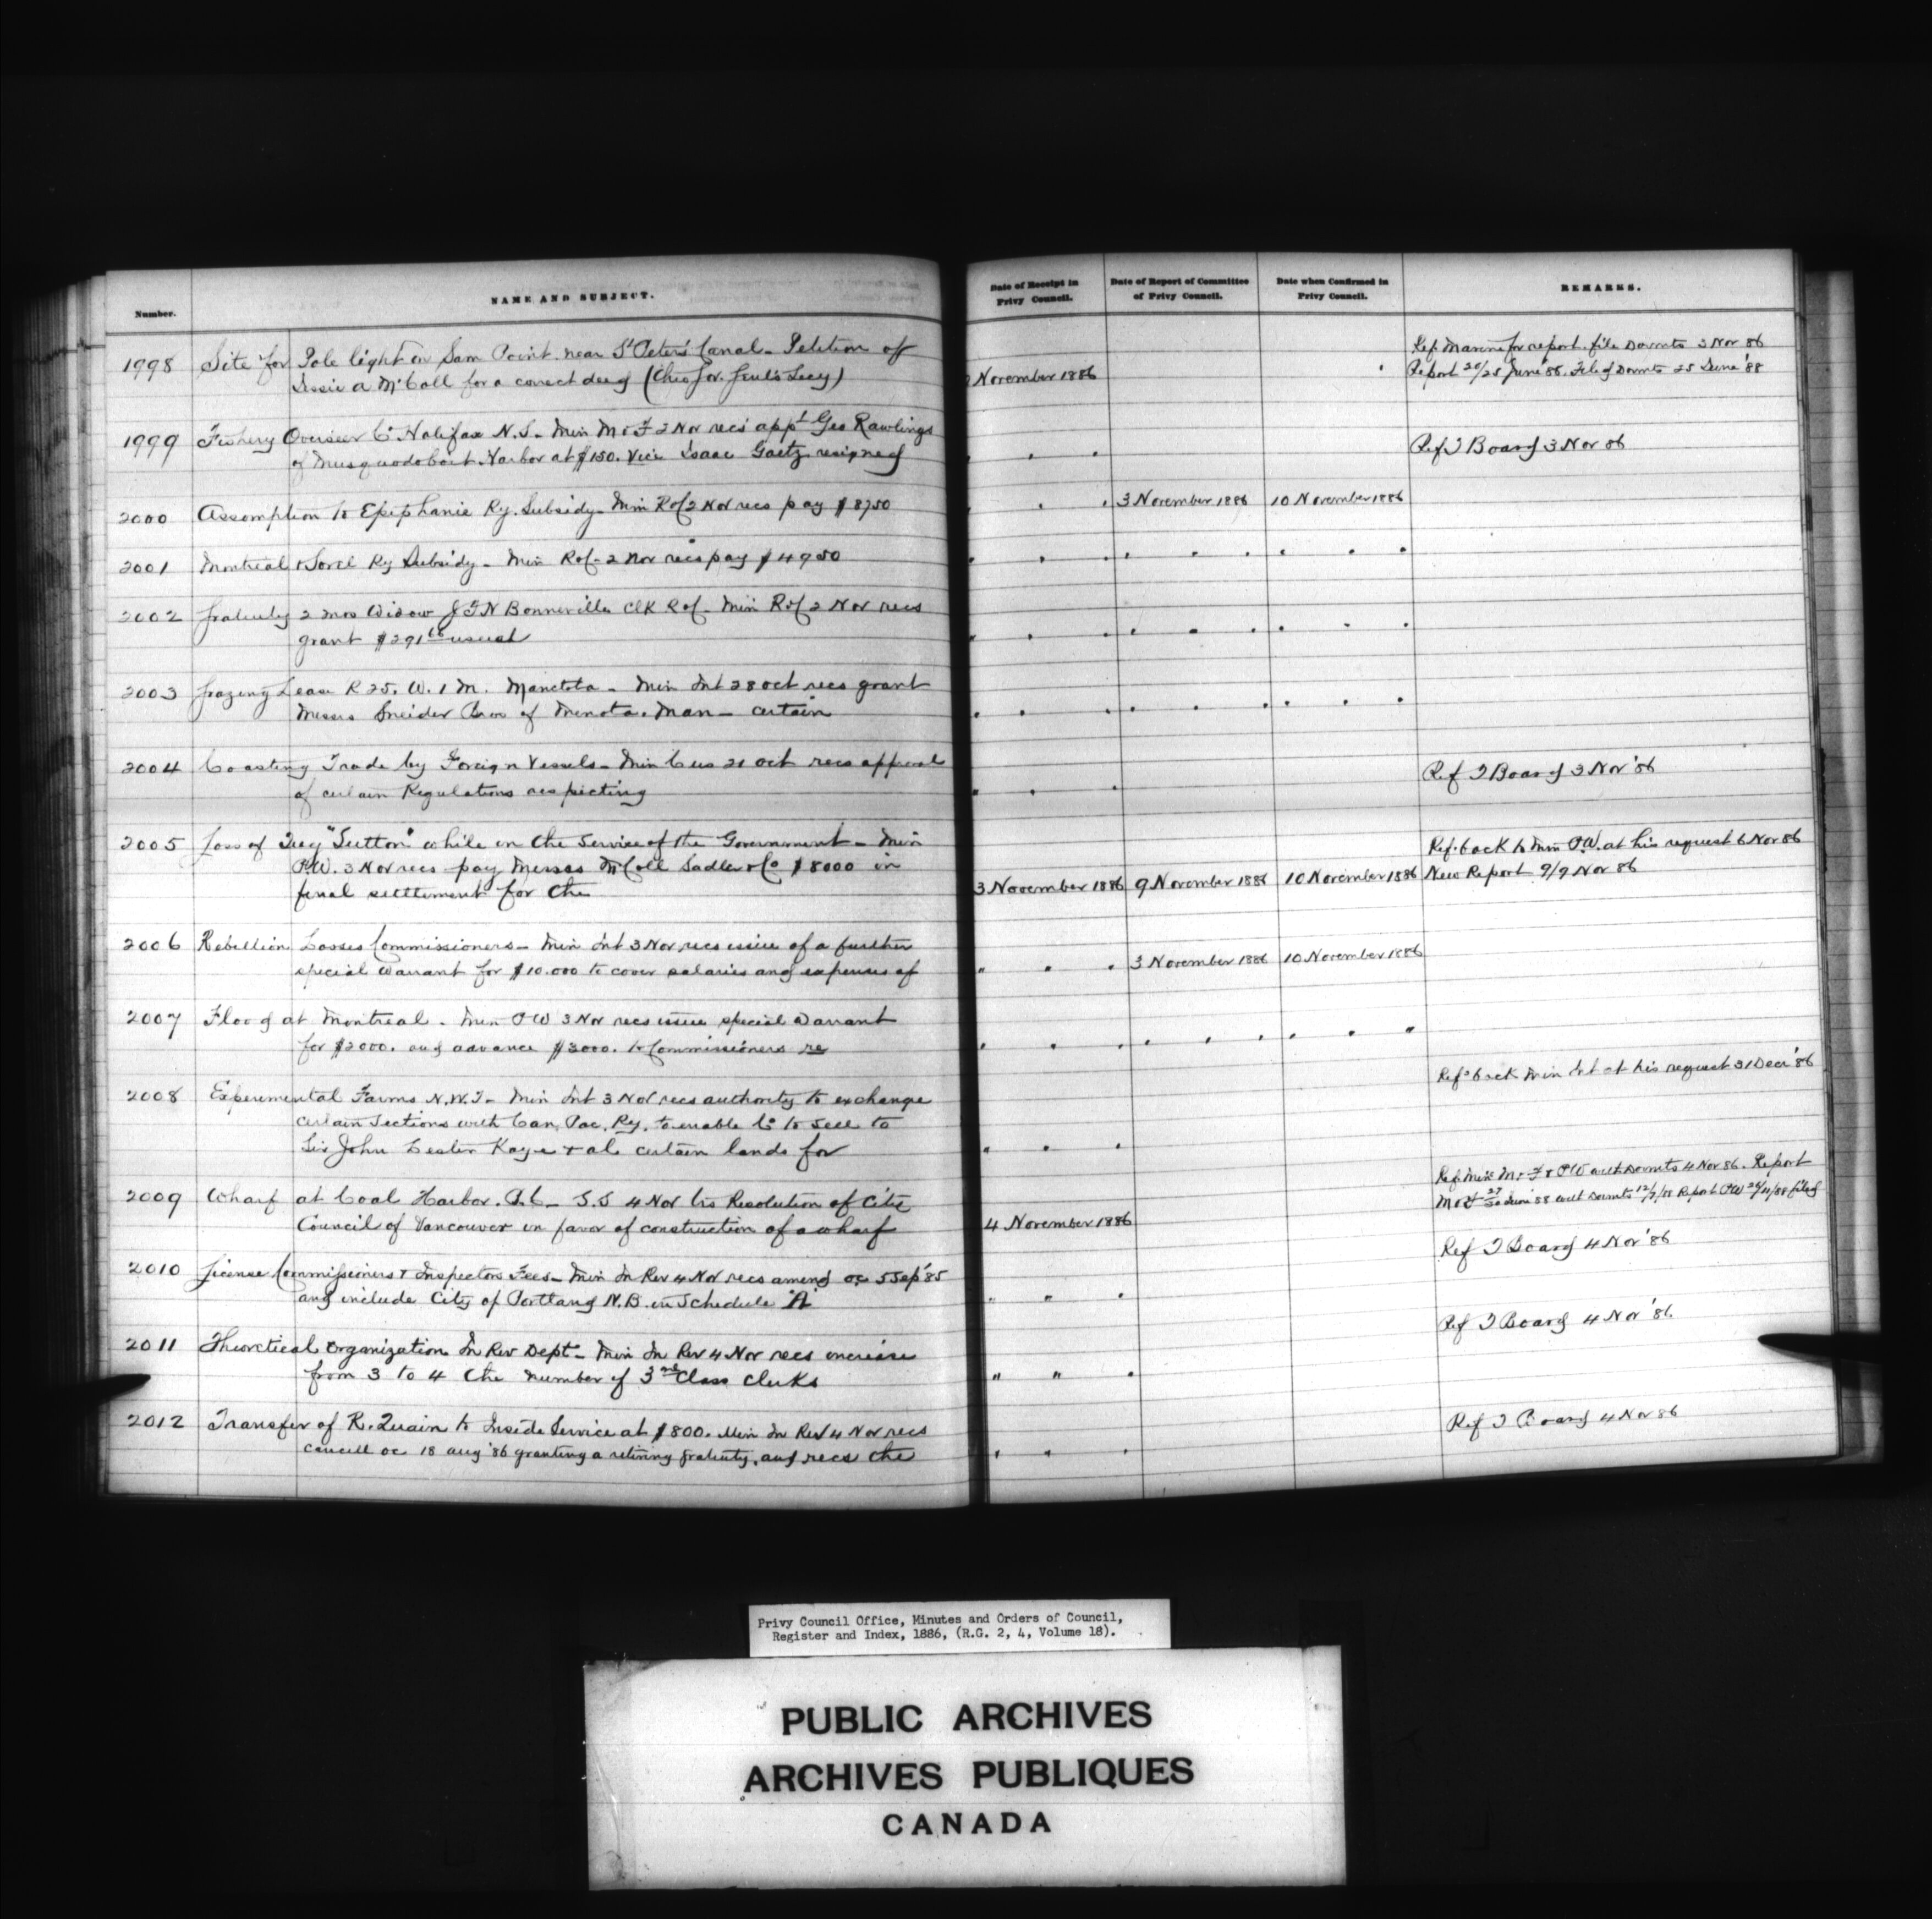 Number.
NAME AND SUBJECT.
Date of Receipt in Privy Council.
Date of Report of Committee of Privy Council.
Date when Confirmed in Privy Council.
REMARKS.
1998 Site for Pole light on Sam Point near St Peters Canal - Petition of
McCall for a correct deed
November 1886
Ref. Marine for report. file Docmts 2 Nov 86
Report 20/25 June '88. Filed Docmts 25 June '88
1999 Fishery Overseer Co Halifax N.S. - Min M & F 2 Nov recs appt Geo Rawlings
of Musquodoboit Harbor at $150. vice Isaac Gaetz resigned
Ref T Board 3 Nov 86
2000 Assomption to Epiphanie Ry. Subsidy - Min R & C 2 Nov recs pay $8750
3 November 1886 10 November 1886
2001 Montreal & Sorel Ry Subsidy - Min R & C - 2 Nov recs pay $4950
2002 Gratuity 2 mos Widow J F N Bonneville Clk R & C - Min R & C 2 Nov recs
grant $291 usual
2003 Grazing Lease R 25. W. 1 M. Manitoba - Min Int 28 Oct recs grant
Messrs Sneider Bros of Menota. Man - certain
2004 Coasting Trade by Foreign Vessels - Min Cus 21 Oct recs approval
of certain Regulations respecting
Ref T Board 3 Nov '86
2005 Loss of Tug "Sutton" while in the Service of the Government - Min
P.W. 3 Nov recs pay Messrs McCall Sadler & Co $8000 in
final settlement for the
3 November 1886 9 November 1886 10 November 1886
Ref. back to Min P.W. at his request 6 Nov 86
New Report 9/9 Nov 86
2006 Rebellion Losses Commissioners - Min Int 3 Nov recs issue of a further
special Warrant for $10.000 to cover salaries and expenses of
" " " 3 November 1886 10 November 1886
2007 Flood at Montreal. Min P W 3 Nov recs issue special Warrant
for $2000. and advance $3000. to Commissioners re
2008 Experimental Farms N.W.T - Min Int 3 Nov recs authority to exchange
certain Sections with Can. Pac. Ry. to enable Co to sell to
Sir John Lester Kaye & al certain lands for
Refd back Min Int at his request 31 Decr '86
2009 Wharf at Coal Harbor. B.C - S.S 4 Nov trs Resolution of City
Council of Vancouver in favor of construction of a wharf
4 November 1886
Ref Min M & F & PW with Docmts 4 Nov 86. Report
M & F 27/30 June '88 with Docmts 12/7/88 Report PW 26/11/88 filed
2010 License Commissioners & Inspectors Fees - Min In Rev 4 Nov recs amend oc 5 Sep '85
and include City of Portland N.B. in Schedule "A"
Ref T Board 4 Nov '86
2011 Theoretical Organization In Rev Dept - Min In Rev 4 Nov recs increase
from 3 to 4 the number of 3rd Class Clerks
" "
Ref T Board 4 Nov '86
2012 Transfer of R. Quain to Inside Service at $800. Min In Rev 4 Nov recs
cancell oc 18 aug '86 granting a retiring gratuity, and recs the
Ref T Board 4 Nov 86
Privy Council Office, Minutes and Orders of Council,
Register and Index, 1886, (R.G. 2, 4, Volume 18).
PUBLIC ARCHIVES
ARCHIVES PUBLIQUES
CANADA